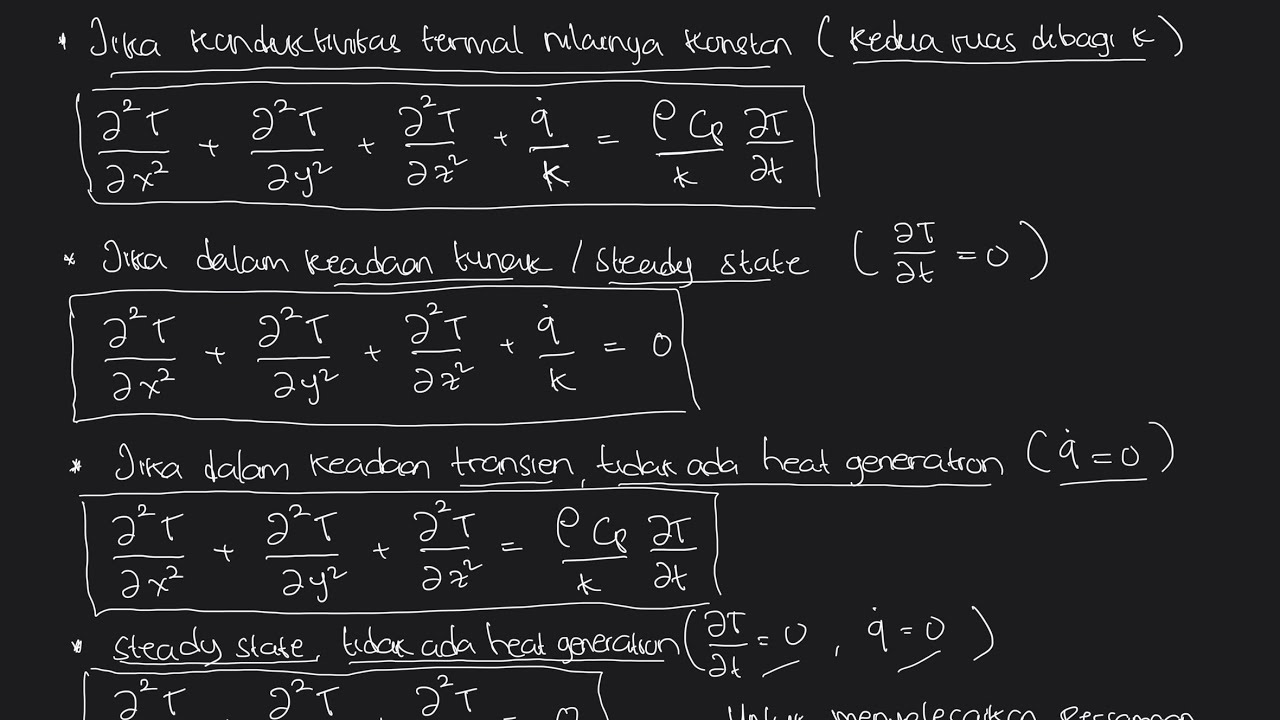 * Jika konduktivitas termal nilainya konstan (kedua ruas dibagi k)
∂²T/∂x² + ∂²T/∂y² + ∂²T/∂z² + q̇/k = ρCp/k ∂T/∂t
* Jika dalam keadaan tunak / steady state (∂T/∂t = 0)
∂²T/∂x² + ∂²T/∂y² + ∂²T/∂z² + q̇/k = 0
* Jika dalam keadaan transien, tidak ada heat generation (q̇ = 0)
∂²T/∂x² + ∂²T/∂y² + ∂²T/∂z² = ρCp/k ∂T/∂t
* steady state, tidak ada heat generation (∂T/∂t = 0, q̇ = 0)
∂²T ∂²T ∂²T 0
Untuk menyelesaikan persamaan